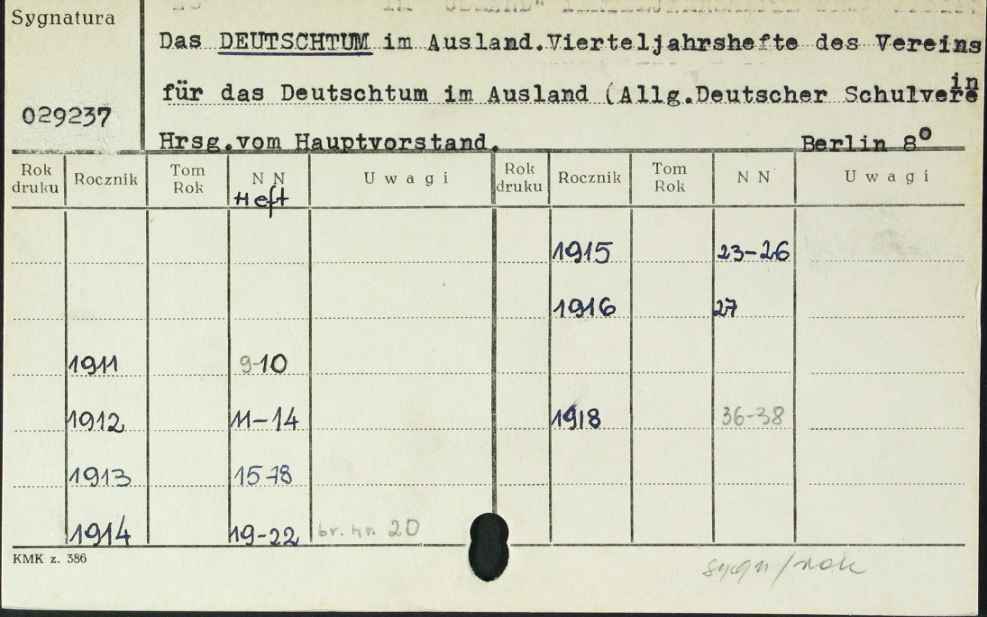 Sygnatura
029237
Das DEUTSCHTUM im Ausland.Vierteljahrshefte des Vereins
für das Deutschtum im Ausland (Allg.Deutscher Schulverein
Hrsg.vom Hauptvorstand. Berlin 8°
Rok druku Rocznik Tom Rok NN Uwagi Rok druku Rocznik Tom Rok NN Uwagi
Heft
1915 23-26
1916 27
1911 9-10
1912 11-14 1918 36-38
1913 15-18
1914 19-22 br. nr. 20
KMK z. 386
sygn/rok